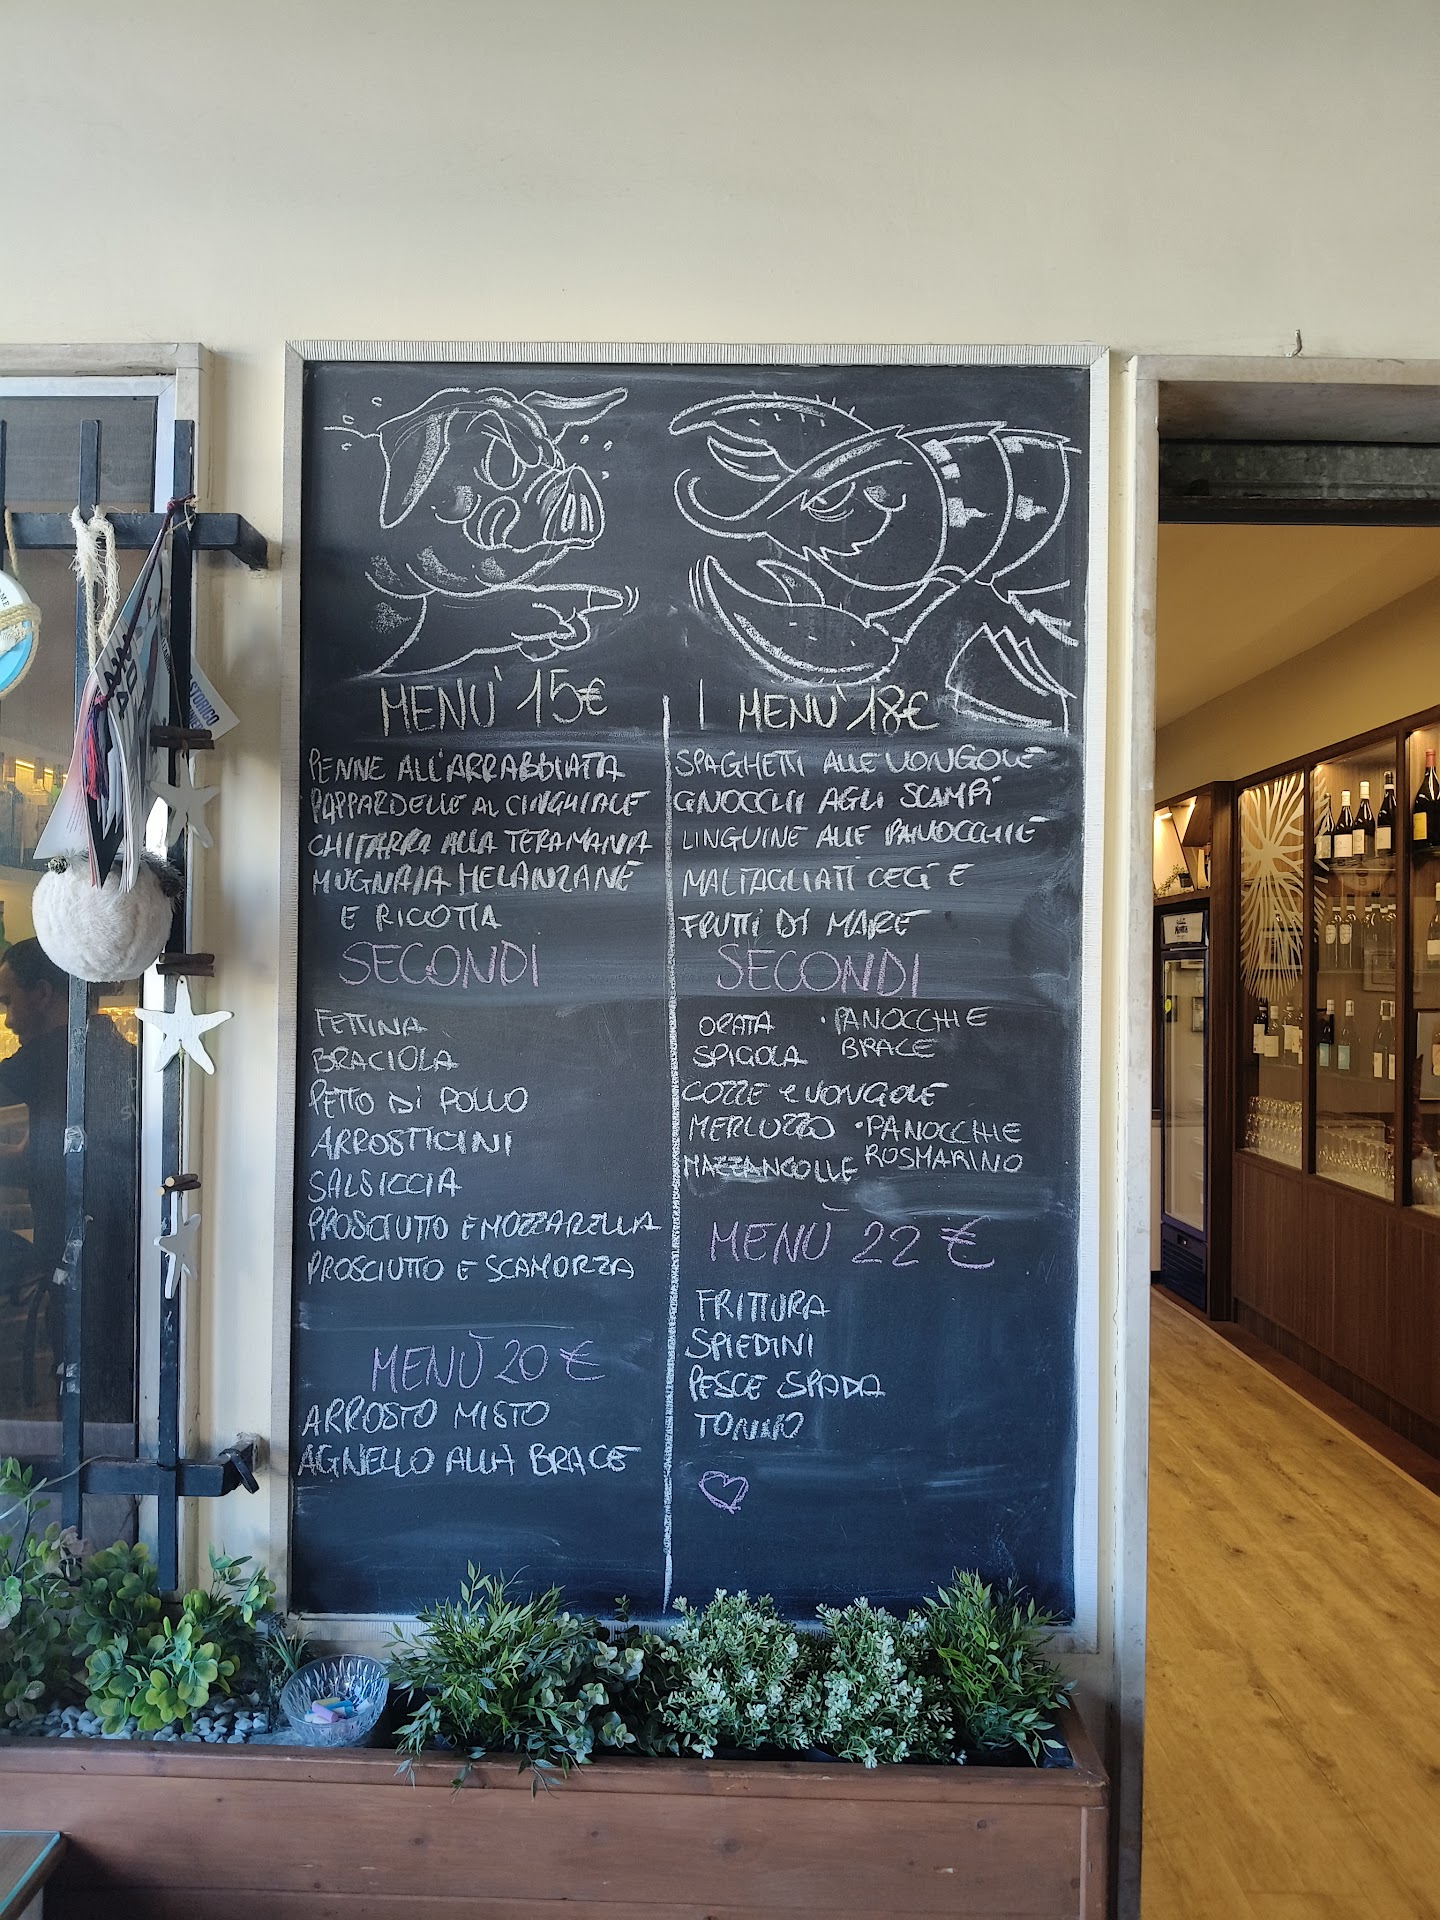 MENU' 15€
PENNE ALL'ARRABBIATA
PAPPARDELLE AL CINGHIALE
CHITARRA ALLA TERAMANA
MUGNAIA MELANZANE
E RICOTTA
SECONDI
FETTINA
BRACIOLA
PETTO DI POLLO
ARROSTICINI
SALSICCIA
PROSCIUTTO E MOZZARELLA
PROSCIUTTO E SCAMORZA
MENÙ 20 €
ARROSTO MISTO
AGNELLO ALLA BRACE
MENÙ 18€
SPAGHETTI ALLE VONGOLE
GNOCCHI AGLI SCAMPI
LINGUINE ALLE PANOCCHIE
MALTAGLIATI CECI E
FRUTTI DI MARE
SECONDI
ORATA · PANOCCHIE
SPIGOLA BRACE
COZZE e VONGOLE
MERLUZZO · PANOCCHIE
MAZZANCOLLE ROSMARINO
MENÙ 22 €
FRITTURA
SPIEDINI
PESCE SPADA
TONNO
STORICO